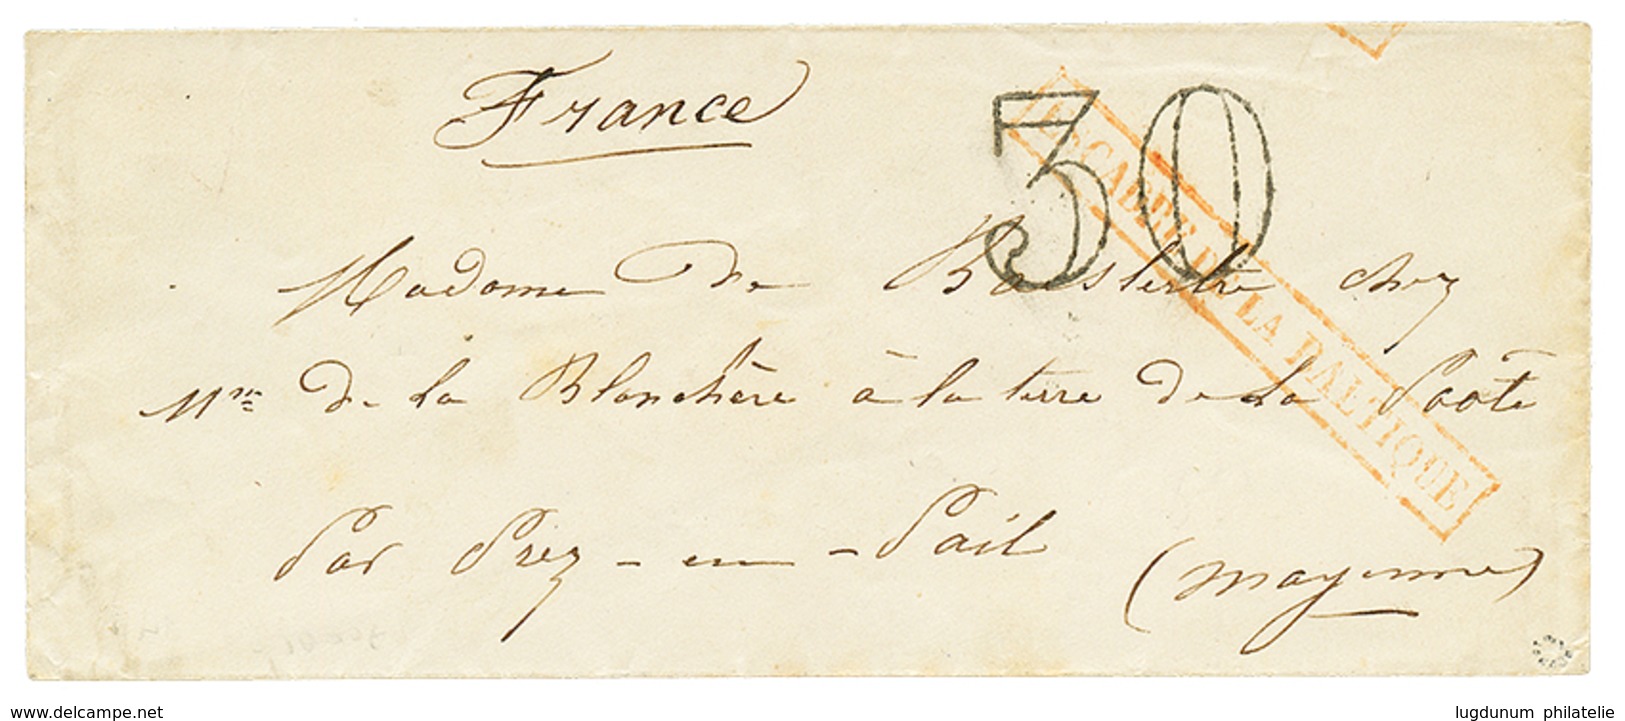 France
30
ESCADRE DE LA BALTIQUE
Madame De chez
Mme De la Blanchère à la terre De La Pooté
Par Prez-en-Pail
(Mayenne)
delcampe.net
lugdunum philatelie